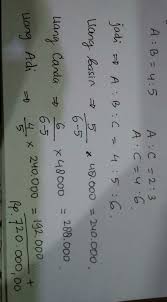 A : B = 4 : 5
A : C = 2 : 3
A : C = 4 : 6
jadi ⇒ A : B : C = 4 : 5 : 6.
Uang basir ⇒ 5/6-5 × 48.000 = 240.000.
Uang Canda ⇒ 6/6-5 × 48.000 = 288.000.
uang Adi ⇒ 4/5 × 240.000 = 192.000
+
Rp. 720.000,00